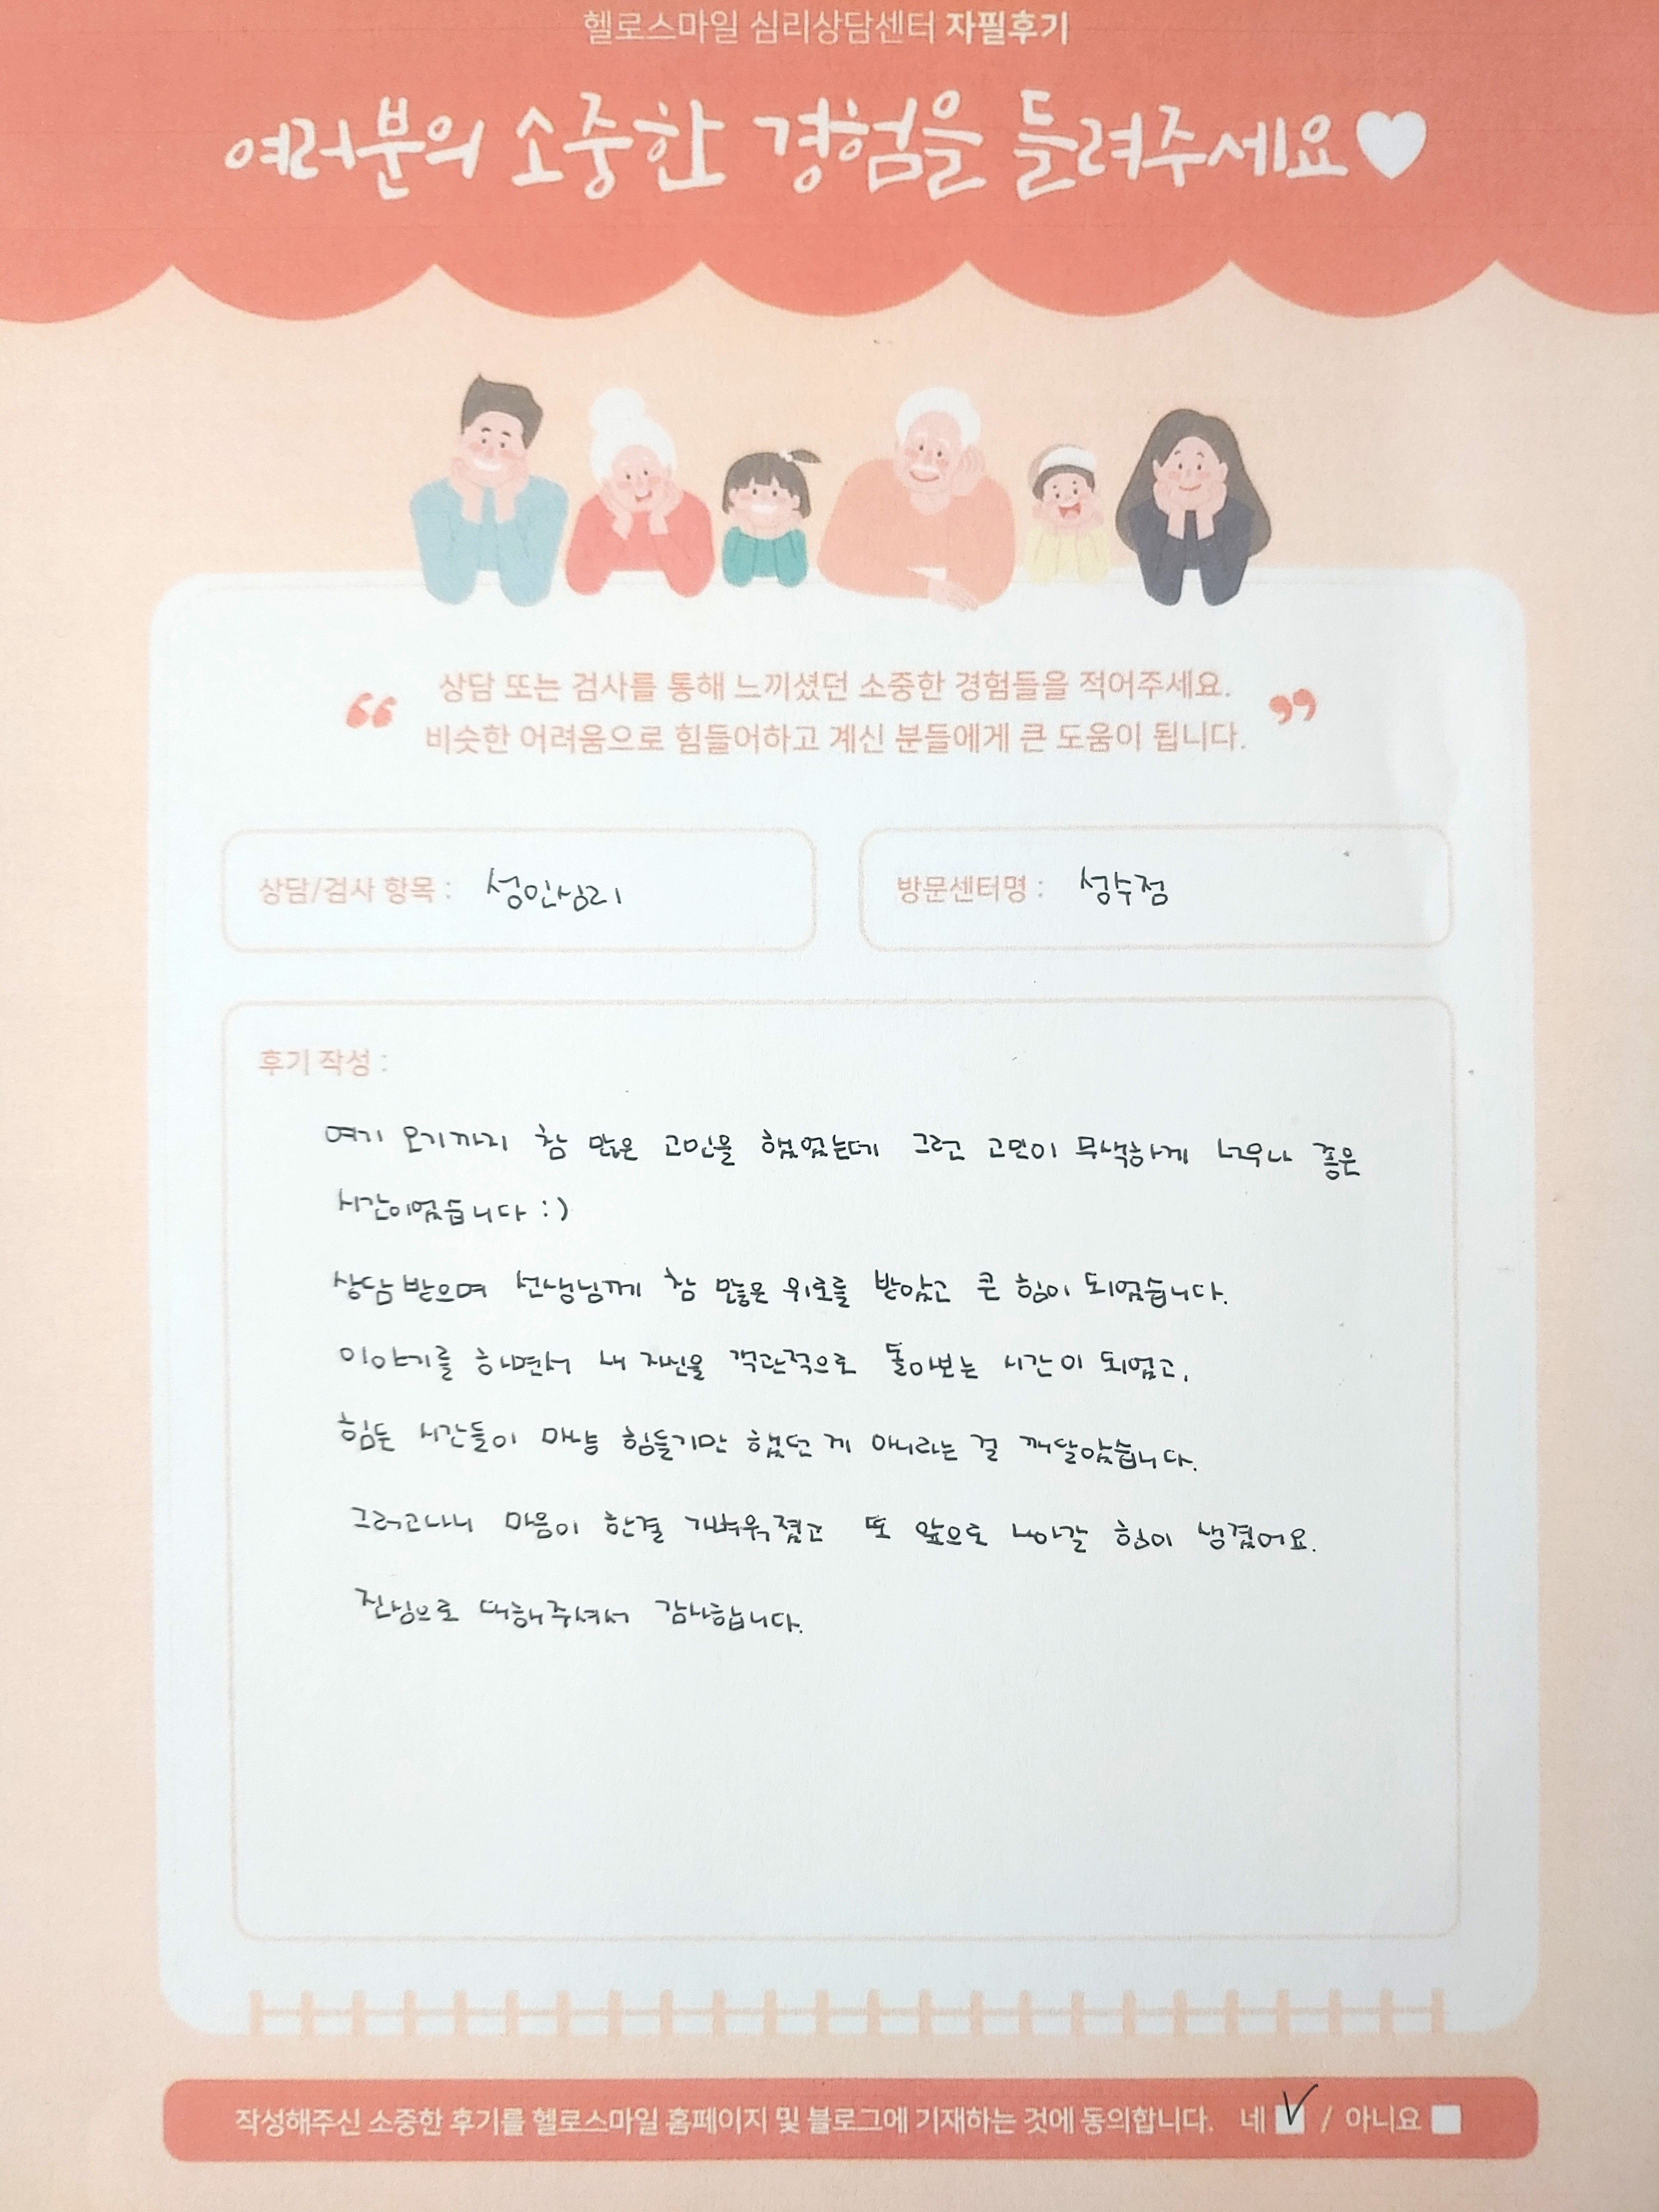 헬로스마일 심리상담센터 자필후기
여러분의 소중한 경험을 들려주세요♥
“ 상담 또는 검사를 통해 느끼셨던 소중한 경험들을 적어주세요.
비슷한 어려움으로 힘들어하고 계신 분들에게 큰 도움이 됩니다. ”
상담/검사 항목 : 성인심리
방문센터명 : 성수점
후기 작성 :
여기 오기까지 참 많은 고민을 했었는데 그런 고민이 무색하게 너무나 좋은
시간이었습니다 :)
상담 받으며 선생님께 참 많은 위로를 받았고 큰 힘이 되었습니다.
이야기를 하면서 내 자신을 객관적으로 돌아보는 시간이 되었고,
힘든 시간들이 마냥 힘들기만 했던 게 아니라는 걸 깨달았습니다.
그러고나니 마음이 한결 가벼워졌고 또 앞으로 나아갈 힘이 생겼어요.
진심으로 대해주셔서 감사합니다.
작성해주신 소중한 후기를 헬로스마일 홈페이지 및 블로그에 기재하는 것에 동의합니다. 네 ☑ / 아니요 ☐